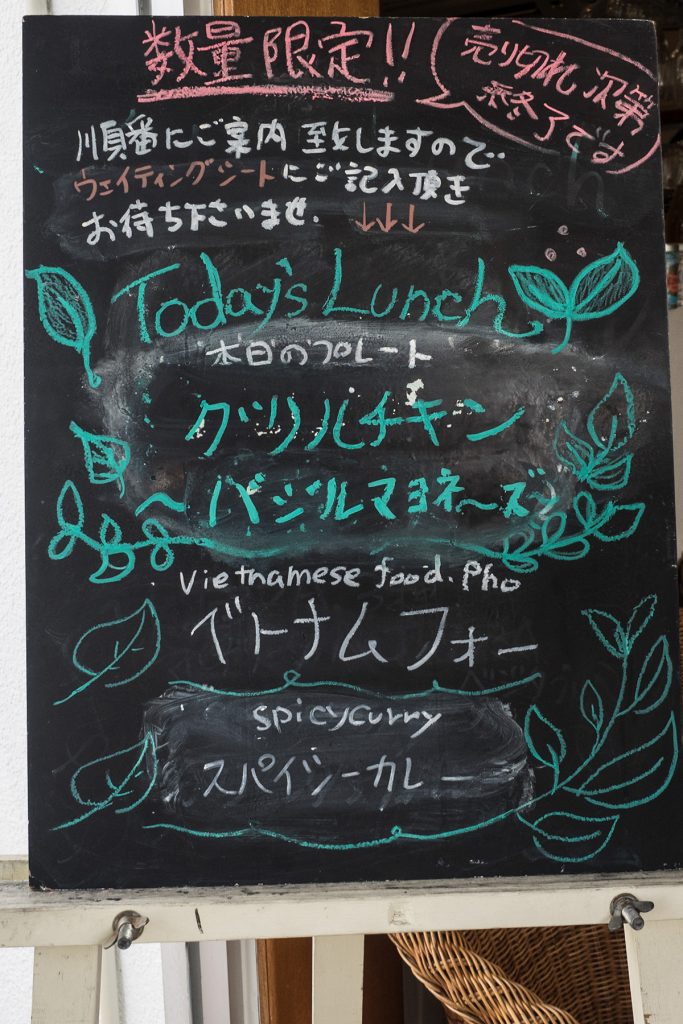 数量限定!!
売り切れ次第
終了です
順番にご案内致しますので
ウェイティングシートにご記入頂き
お待ち下さいませ. ↓↓↓
Today's Lunch
本日のプレート
グリルチキン
〜バジルマヨネ〜ズ
Vietnamese food. Pho
ベトナムフォー
spicycurry
スパイシーカレー